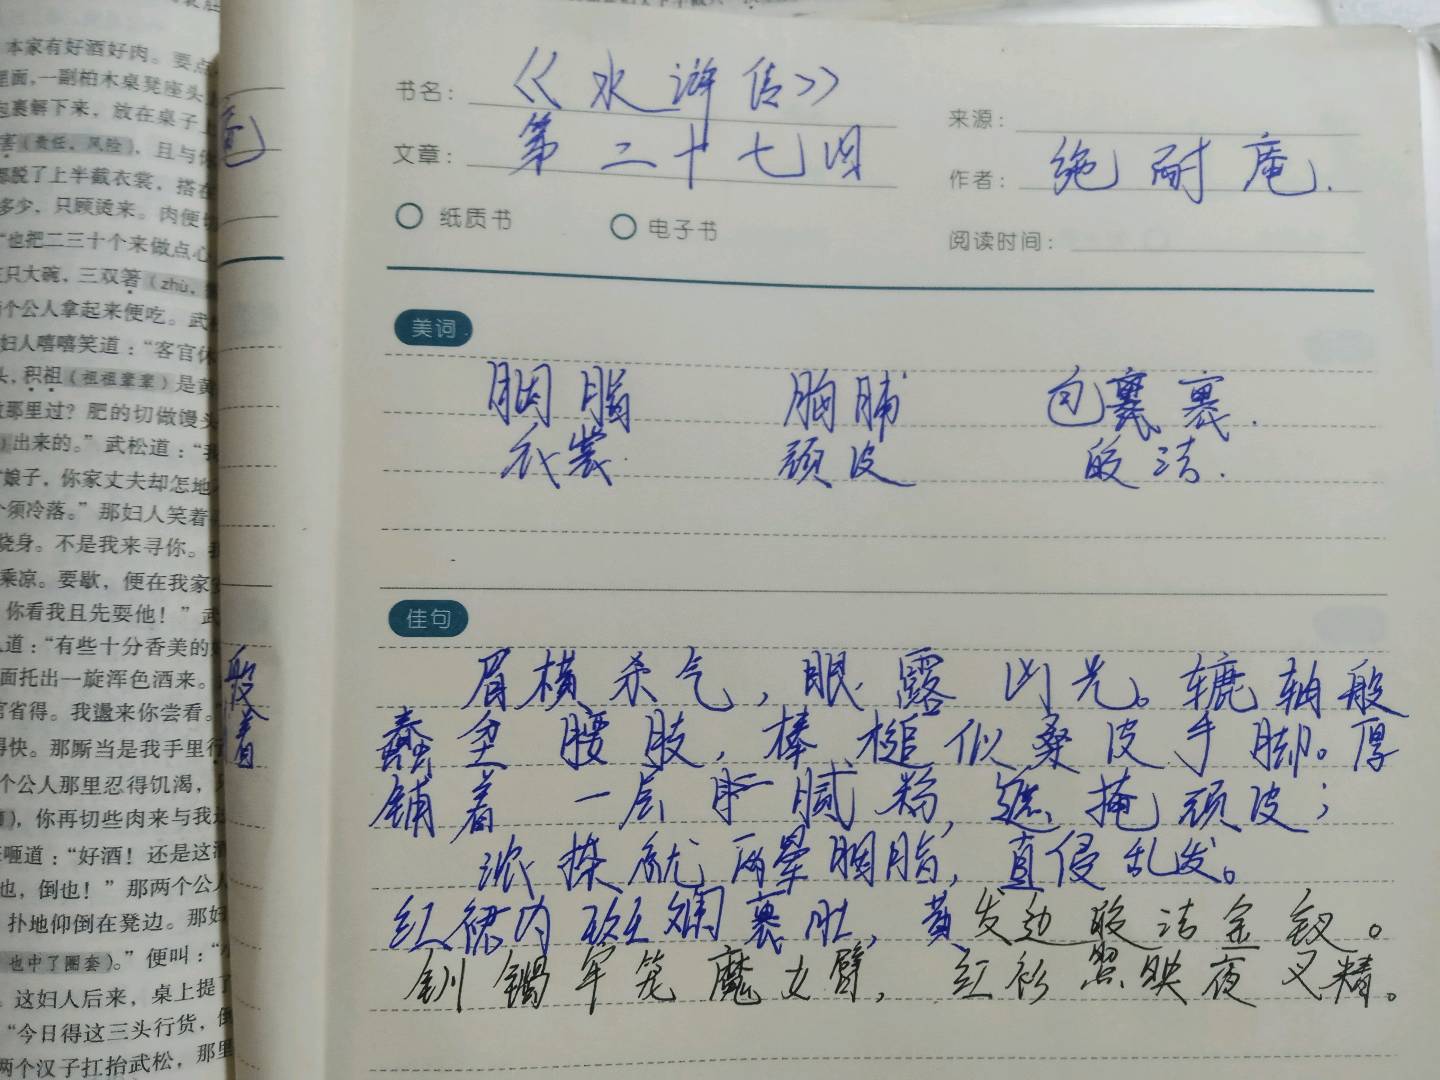 本家有好酒好肉。要点
里面，一副柏木桌凳座头
包裹解下来，放在桌子
害（责任，风险），且与你
都脱了上半截衣裳，搭在
多少，只顾烫来。肉便切
“也把二三十个来做点心
三只大碗，三双箸（zhù，
两个公人拿起来便吃。武
妇人嘻嘻笑道：“客官休
头，积祖（祖祖辈辈）是黄
敢那里过？肥的切做馒头
出来的。”武松道：“我
“娘子，你家丈夫却怎地
个须冷落。”那妇人笑着
烧身。不是我来寻你。我
乘凉。要歇，便在我家安
你看我且先耍他！”武
道：“有些十分香美的好
面托出一旋浑色酒来。
官省得。我盪来你尝看。”
得快。那厮当是我手里行
个公人那里忍得饥渴，只
，你再切些肉来与我过
咂道：“好酒！还是这酒
也，倒也！”那两个公人
扑地仰倒在凳边。那妇
也中了圈套）。”便叫：“小
这妇人后来，桌上提了
“今日得这三头行货，倒
两个汉子扛抬武松，那里
庵
般
着
书名：《水浒传》
来源：
文章：第二十七回
作者：绝耐庵.
纸质书 电子书
阅读时间：
美词
胭脂 胸脯 包裹.
衣裳. 顽皮 皎洁.
佳句
眉横杀气，眼露凶光。辘轴般
蠢坌腰肢，棒槌似桑皮手脚。厚
铺着一层腻粉，遮掩顽皮；
浓搽就两晕胭脂，直侵乱发。
红裙内斑斓裹肚，黄发边皎洁金钗。
钏镯牢笼魔女臂，红衫照映夜叉精。